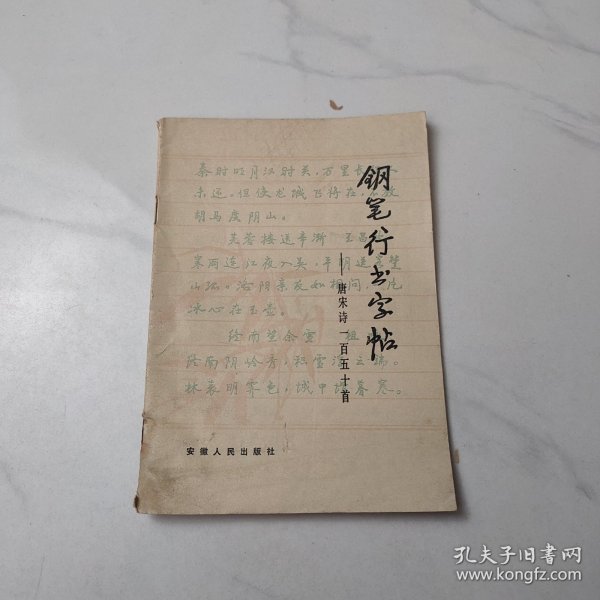 钢笔行书字帖
——唐宋诗一百五十首
秦时明月汉时关，万里长
未还。但使龙城飞将在，
胡马度阴山。
芙蓉楼送辛渐 王昌
寒雨连江夜入吴，平明送客楚
山孤。洛阳亲友如相问，
冰心在玉壶。
终南望余雪 祖
终南阴岭秀，积雪浮云端。
林表明霁色，城中增暮寒。
安徽人民出版社
孔夫子旧书网
www.kongfz.com